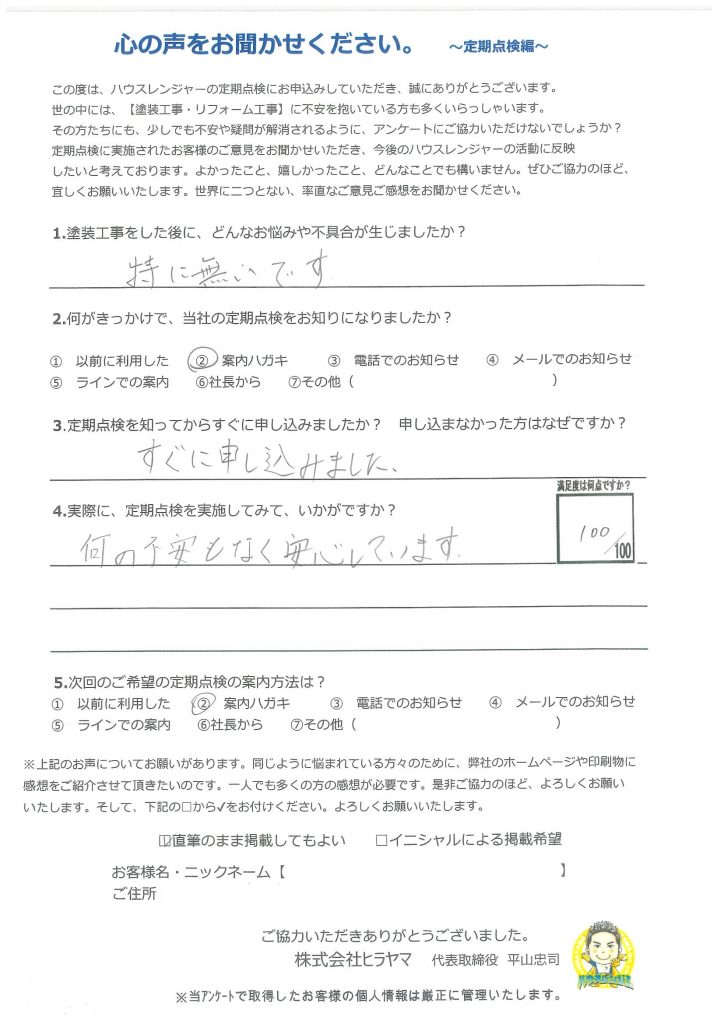 心の声をお聞かせください。 ～定期点検編～
この度は、ハウスレンジャーの定期点検にお申込みしていただき、誠にありがとうございます。
世の中には、【塗装工事・リフォーム工事】に不安を抱いている方も多くいらっしゃいます。
その方たちにも、少しでも不安や疑問が解消されるように、アンケートにご協力いただけないでしょうか？
定期点検に実施されたお客様のご意見をお聞かせいただき、今後のハウスレンジャーの活動に反映
したいと考えております。よかったこと、嬉しかったこと、どんなことでも構いません。ぜひご協力のほど、
宜しくお願いいたします。世界に二つとない、率直なご意見ご感想をお聞かせください。
1.塗装工事をした後に、どんなお悩みや不具合が生じましたか？
特に無いです
2.何がきっかけで、当社の定期点検をお知りになりましたか？
① 以前に利用した ② 案内ハガキ ③ 電話でのお知らせ ④ メールでのお知らせ
⑤ ラインでの案内 ⑥社長から ⑦その他（ ）
3.定期点検を知ってからすぐに申し込みましたか？ 申し込まなかった方はなぜですか？
すぐに申し込みました、
満足度は何点ですか？
4.実際に、定期点検を実施してみて、いかがですか？
100/100
何の不安もなく安心しています.
5.次回のご希望の定期点検の案内方法は？
① 以前に利用した ② 案内ハガキ ③ 電話でのお知らせ ④ メールでのお知らせ
⑤ ラインでの案内 ⑥社長から ⑦その他（ ）
※上記のお声についてお願いがあります。同じように悩まれている方々のために、弊社のホームページや印刷物に
感想をご紹介させて頂きたいのです。一人でも多くの方の感想が必要です。是非ご協力のほど、よろしくお願い
いたします。そして、下記の□から✓をお付けください。よろしくお願いいたします。
☑直筆のまま掲載してもよい □イニシャルによる掲載希望
お客様名・ニックネーム【 】
ご住所
ご協力いただきありがとうございました。
株式会社ヒラヤマ 代表取締役 平山忠司
※当アンケートで取得したお客様の個人情報は厳正に管理いたします。